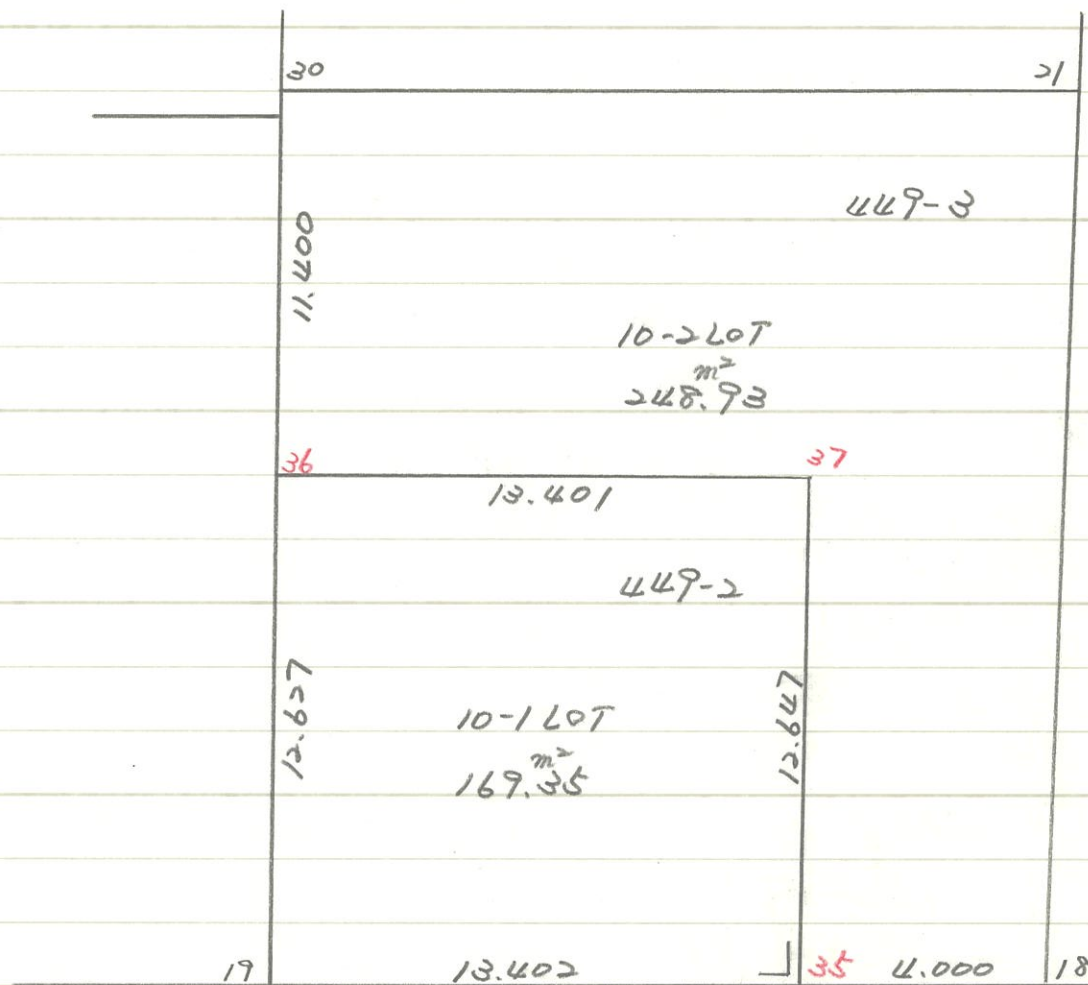 30
21
449-3
11.400
10-2 LOT
m²
248.93
36
37
13.401
449-2
12.627
12.647
10-1 LOT
m²
169.35
19
13.402
35
4.000
18